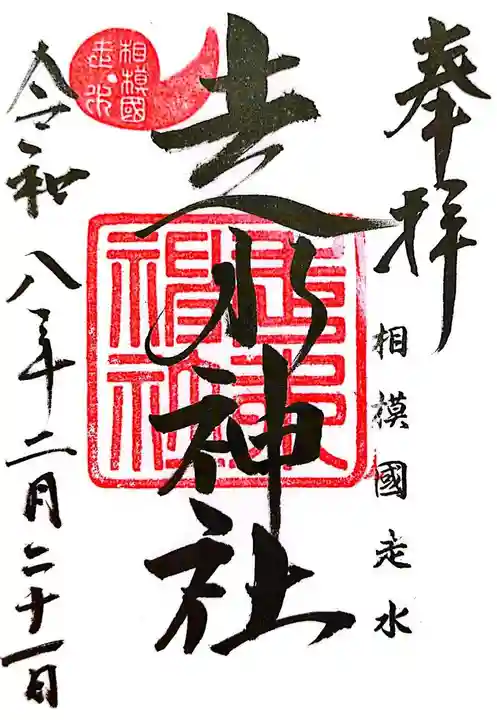 奉拝
相模國走水
走水神社
相模國
走水
走水神社
令和八年二月二十一日